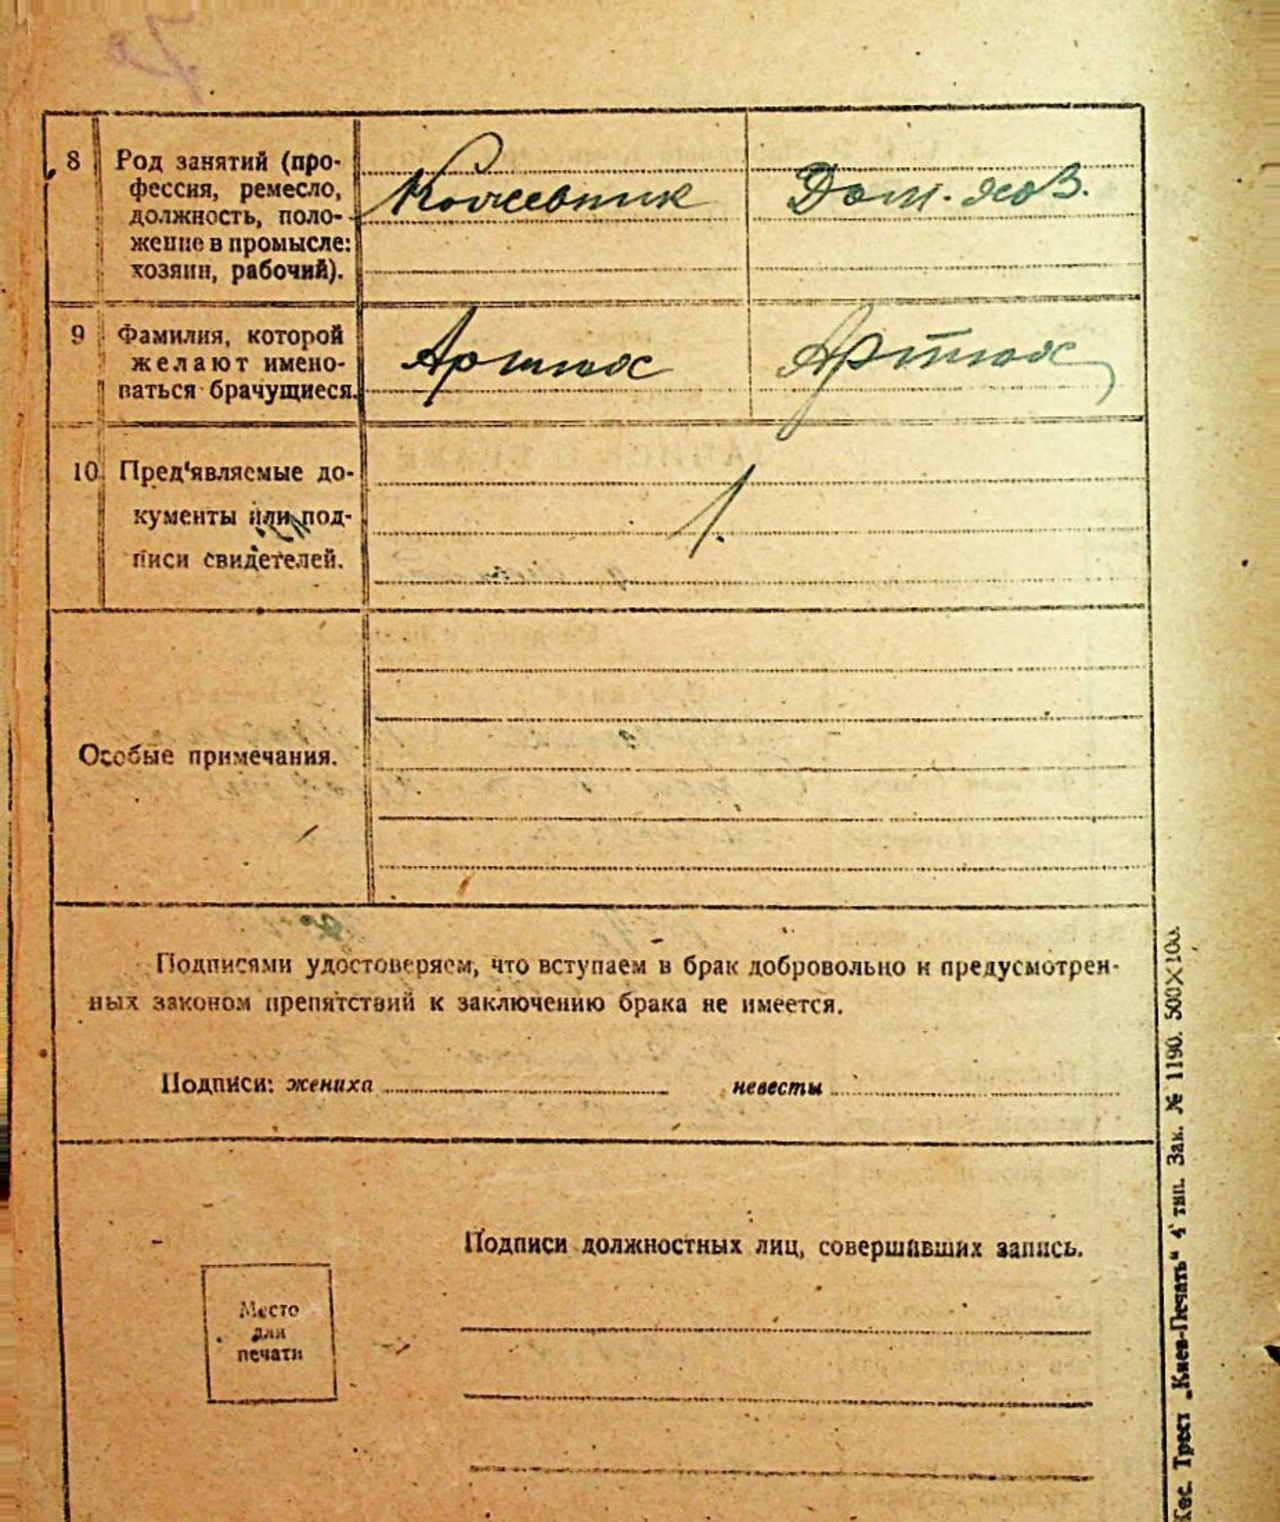 8 Род занятий (про-
фессия, ремесло,
должность, поло-
жение в промысле:
хозяин, рабочий).
Кожевник
Дом. хоз.
9 Фамилия, которой
желают имено-
ваться брачущиеся.
Артюх
Артюх
10 Пред‘являемые до-
кументы или под-
писи свидетелей.
Особые примечания.
Подписями удостоверяем, что вступаем в брак добровольно и предусмотрен-
ных законом препятствий к заключению брака не имеется.
Подписи: жениха невесты
Подписи должностных лиц, совершивших запись.
Место
для
печати
Трест „Киев-Печать“ 4 тип. Зак. № 1190. 500×100.